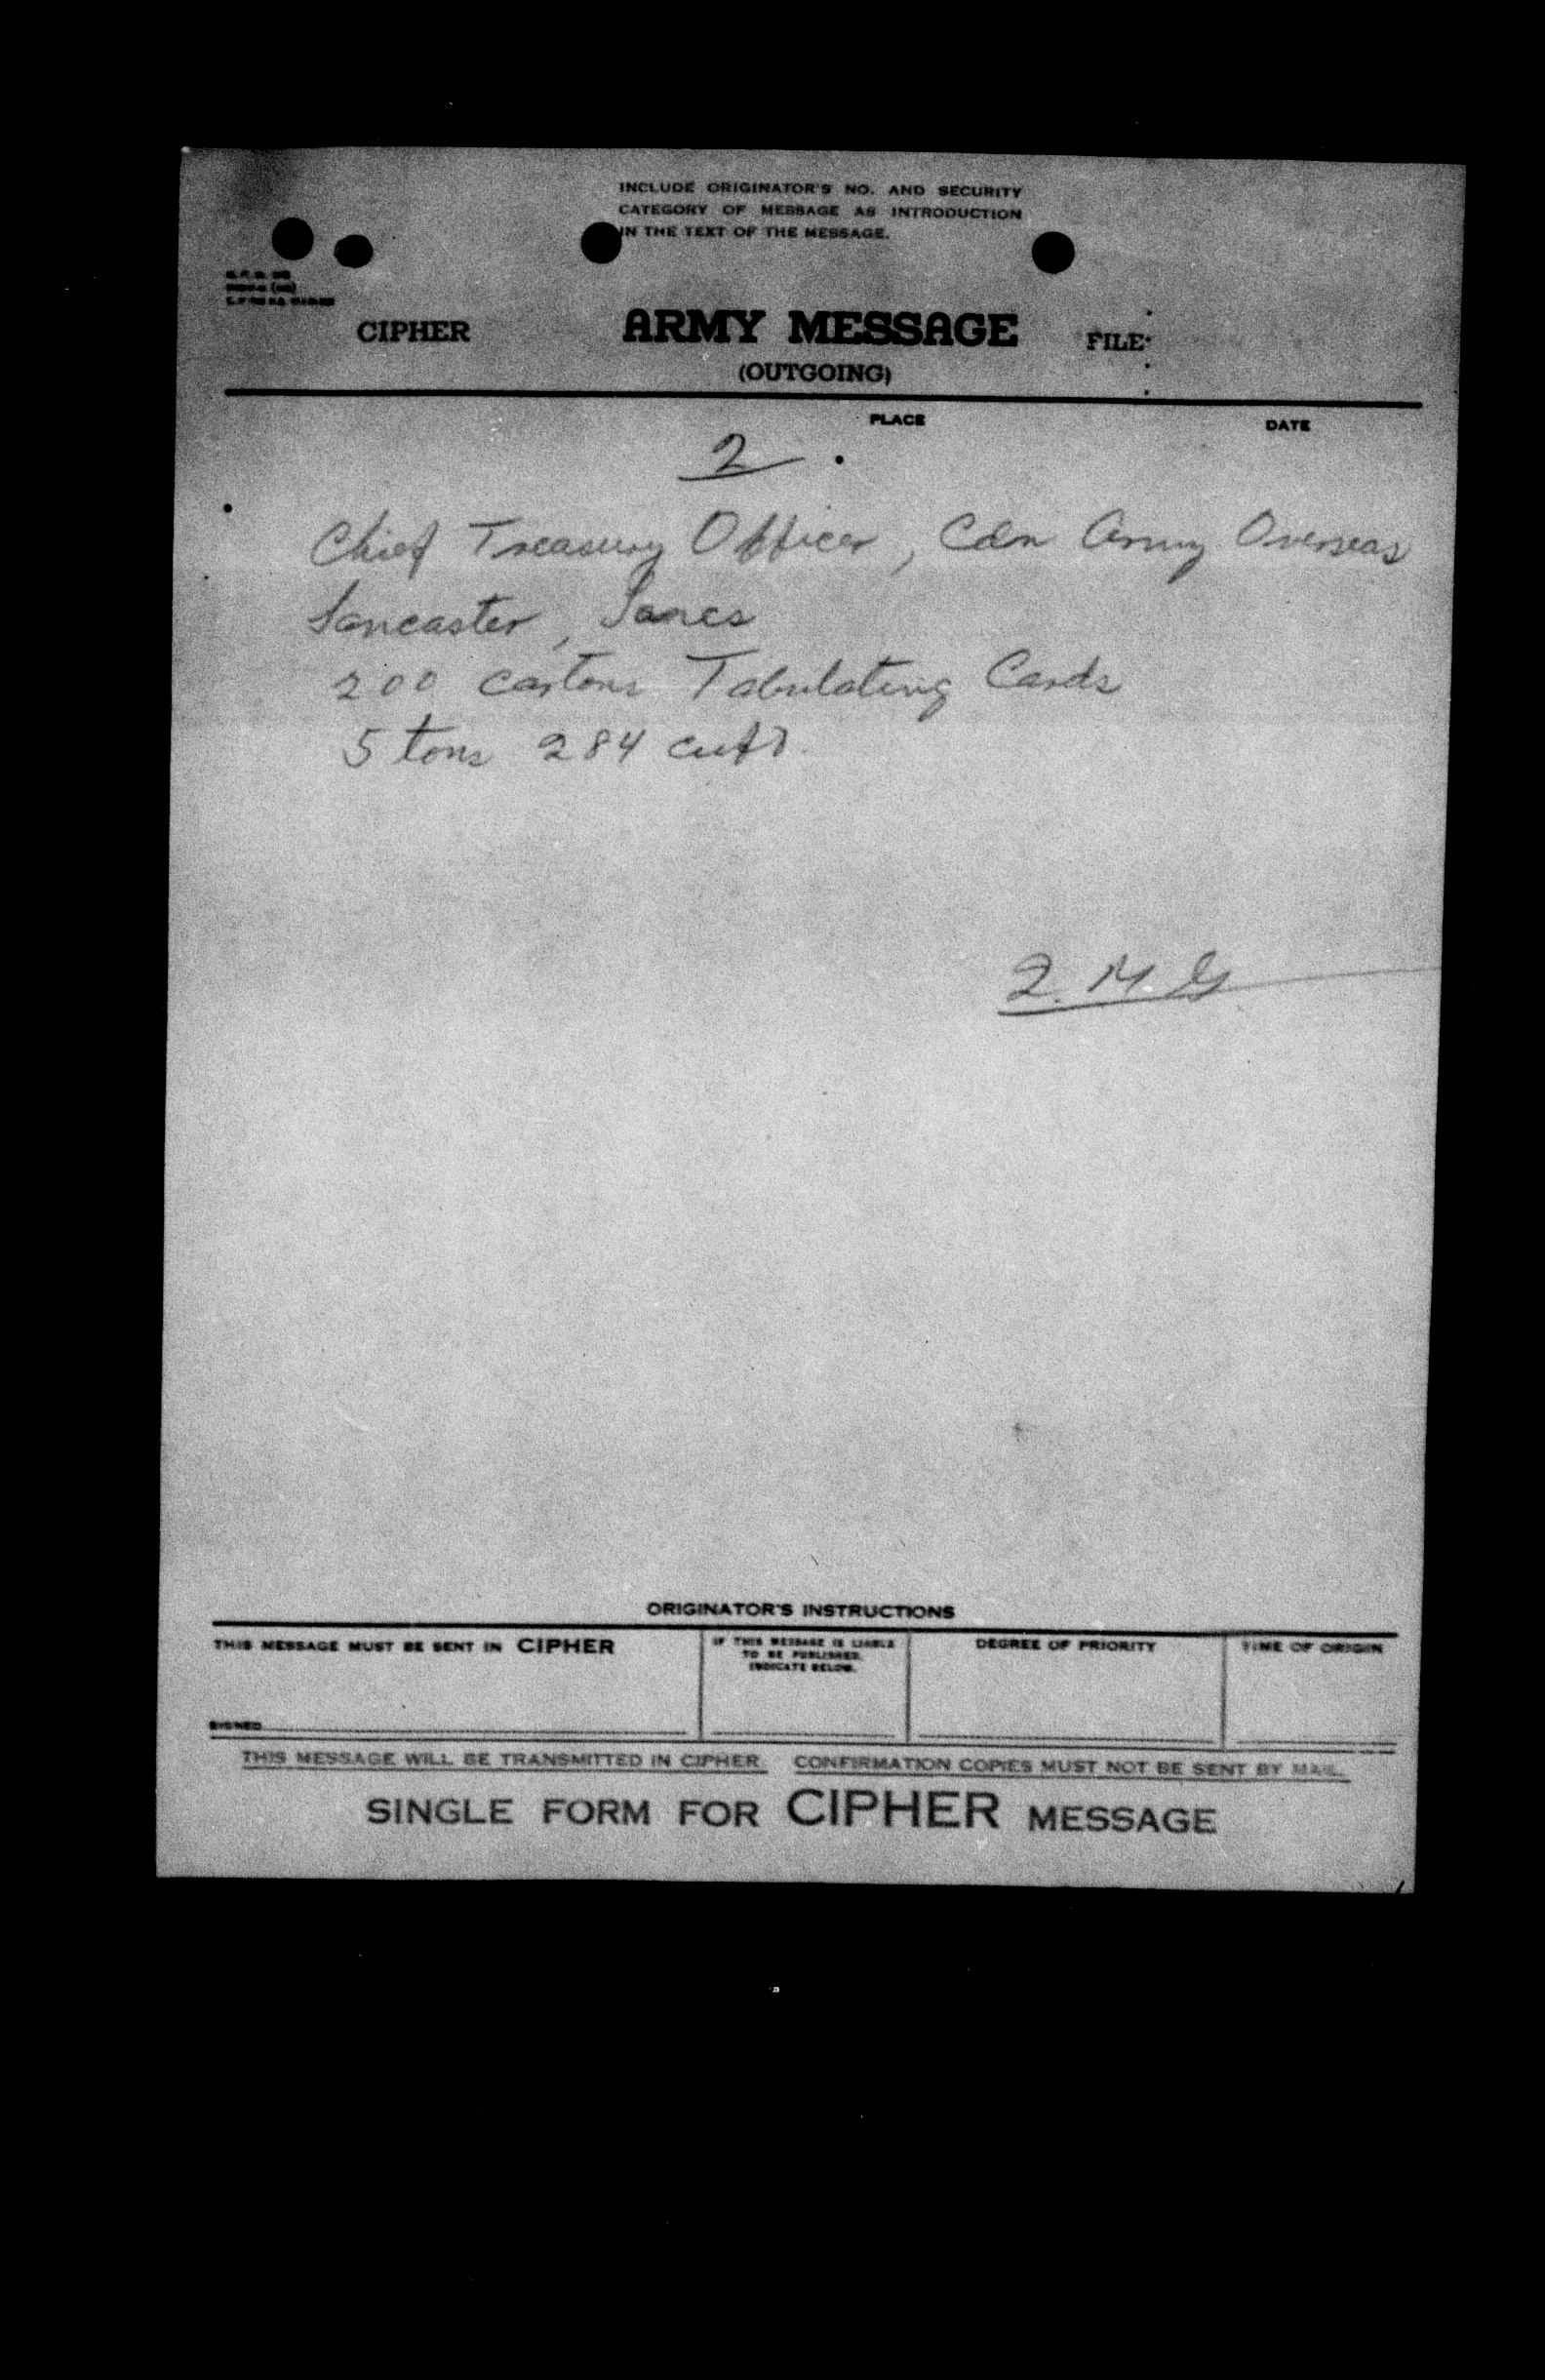 INCLUDE ORIGINATOR'S NO. AND SECURITY
CATEGORY OF MESSAGE AS INTRODUCTION
IN THE TEXT OF THE MESSAGE.
CIPHER
ARMY MESSAGE
FILE
(OUTGOING)
PLACE
DATE
2
Chief Treasury Officer, Cdn Army Overseas
Lancaster, Lancs
200 cartons Tabulating Cards
5 tons 284 cuft
Q.M.G
ORIGINATOR'S INSTRUCTIONS
THIS MESSAGE MUST BE SENT IN CIPHER
IF THIS MESSAGE IS LIABLE
TO BE PUBLISHED,
INDICATE BELOW.
DEGREE OF PRIORITY
TIME OF ORIGIN
SIGNED
THIS MESSAGE WILL BE TRANSMITTED IN CIPHER. CONFIRMATION COPIES MUST NOT BE SENT BY MAIL.
SINGLE FORM FOR CIPHER MESSAGE